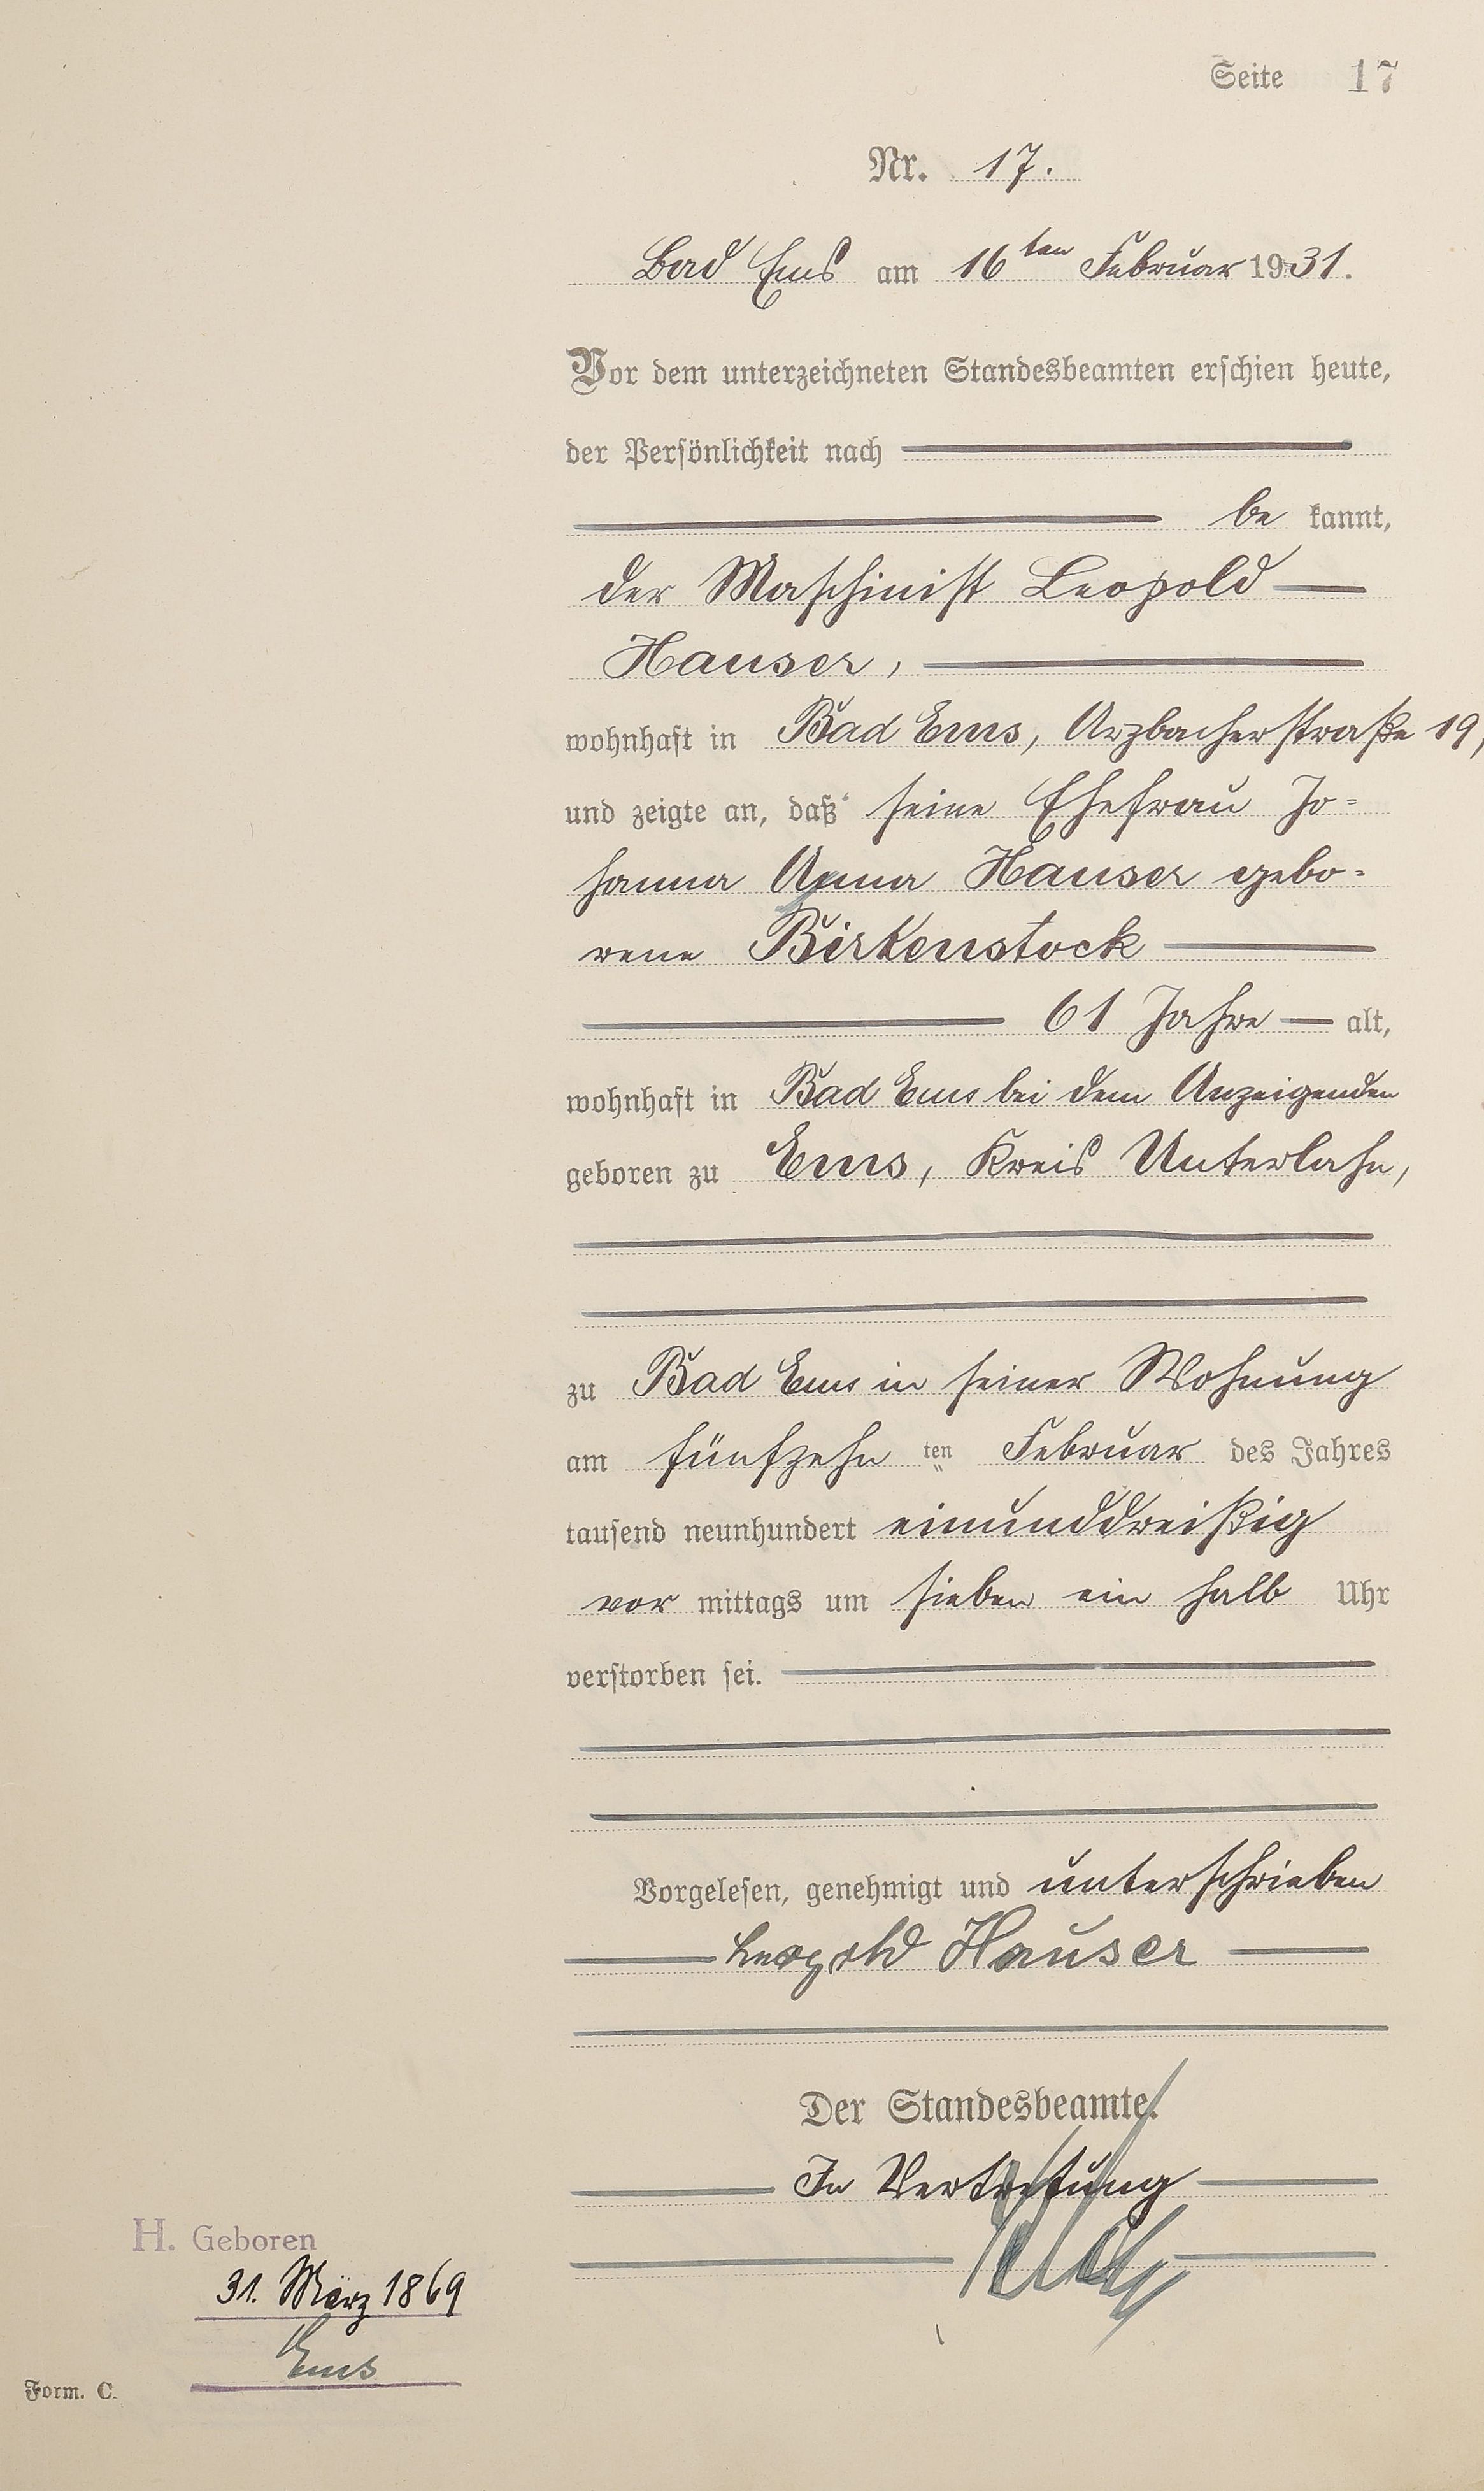 Seite 17
Nr. 17.
Bad Ems am 16ten Februar 1931.
Vor dem unterzeichneten Standesbeamten erschien heute,
der Persönlichkeit nach
be kannt,
der Maschinist Leopold
Hauser,
wohnhaft in Bad Ems, Arzbacherstraße 19,
und zeigte an, daß seine Ehefrau Jo=
hanna Anna Hauser gebo=
rene Birkenstock
61 Jahre alt,
wohnhaft in Bad Ems bei dem Anzeigenden
geboren zu Ems, Kreis Unterlahn,
zu Bad Ems in seiner Wohnung
am fünfzehn ten Februar des Jahres
tausend neunhundert einunddreißig
vor mittags um sieben ein halb Uhr
verstorben sei.
Vorgelesen, genehmigt und unterschrieben
Leopold Hauser
Der Standesbeamte.
In Vertretung
H. Geboren
31. März 1869
Ems
Form. C.